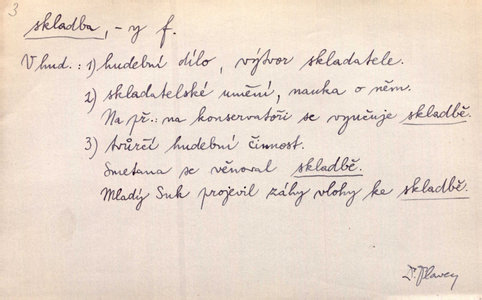 3
skladba, -y f.
V hud.: 1) hudební dílo, výtvor skladatele.
2) skladatelské umění, nauka o něm.
Na př.: na konservatoři se vyučuje skladbě.
3) tvůrčí hudební činnost.
Smetana se věnoval skladbě.
Mladý Suk projevil záhy vlohy ke skladbě.